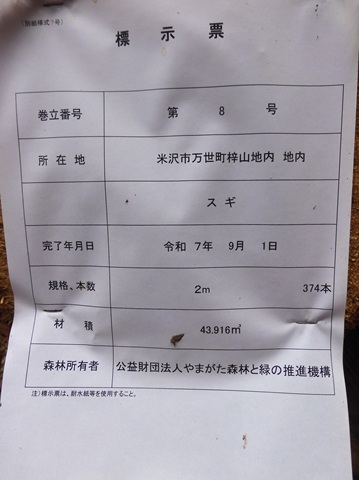 （別紙様式7号）
標示票
巻立番号 第 8 号
所在地 米沢市万世町梓山地内 地内
スギ
完了年月日 令和 7年 9月 1日
規格、本数 2m 374本
材積 43.916㎥
森林所有者 公益財団法人やまがた森林と緑の推進機構
注）標示票は、耐水紙等を使用すること。